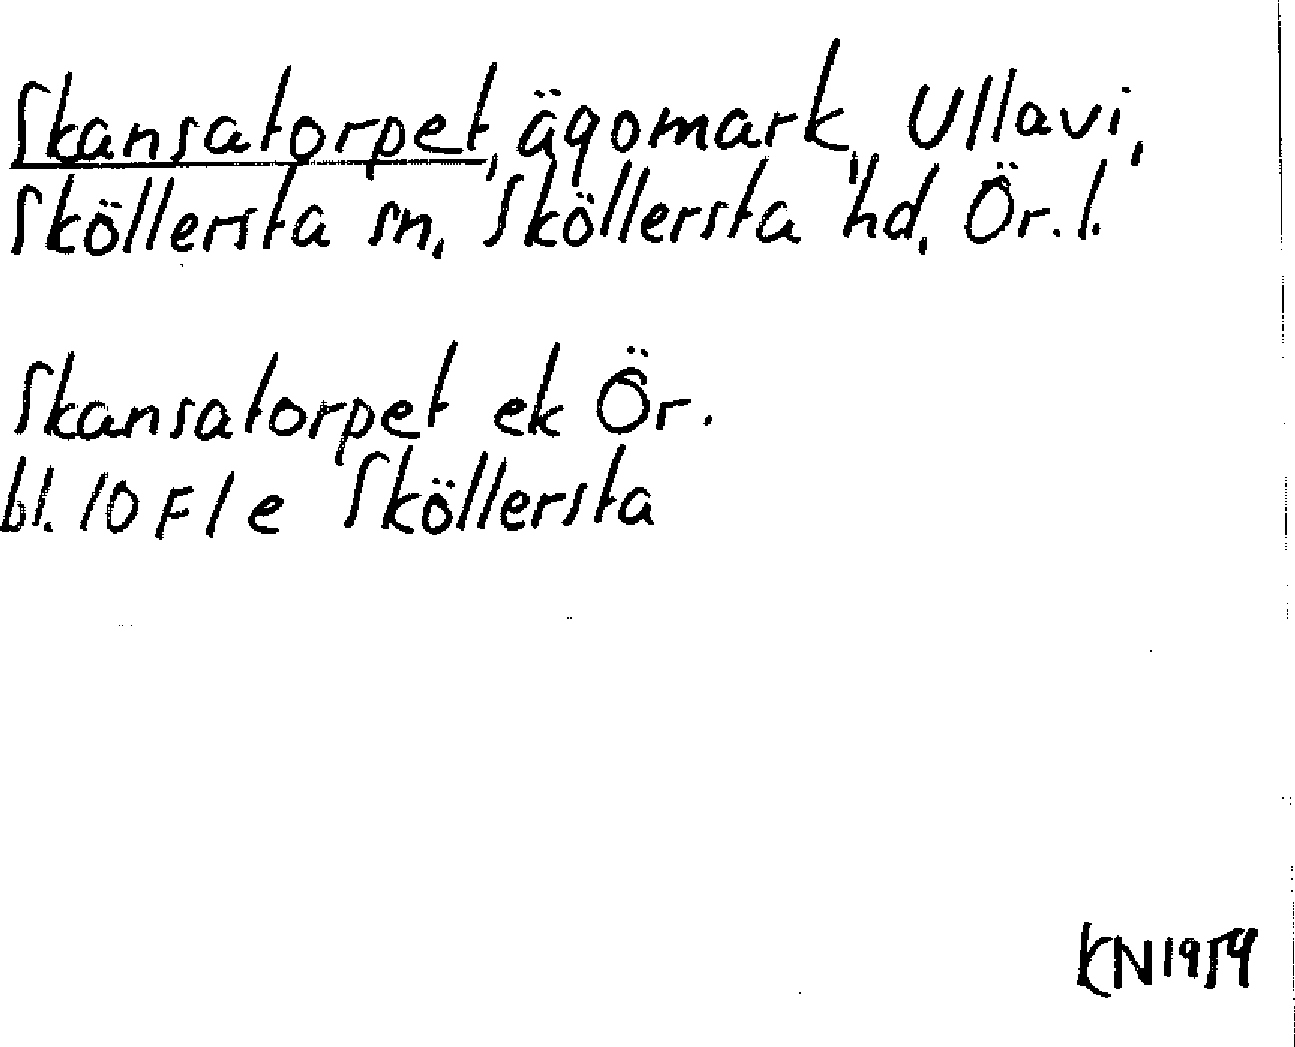 Skansatorpet, ägomark, Ullavi,
Sköllersta sn, Sköllersta hd, Ör. l.
Skansatorpet ek Ör.
bl. 10 F 1 e Sköllersta
KN 1959